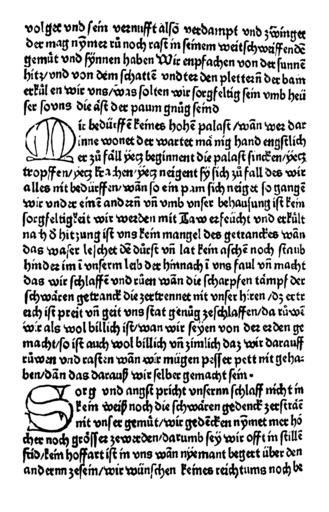 volget vnd sein vernufft also verdampt vnd zwinget
der mag nymer rů noch rast in seinem weitschwaiffende
gemůt vnd synnen haben Wir enpfachen von der sunnen
hitz/vnd von dem schatten vnd ter den plettern der bam
erkülen wir vns/was solten wir sorgfeltig sein vmb heü
ser so vns die äst der paum gnůg seind
Wir bedürffen keines hohen palast/wan wer dar
inne wonet der wartet manig hand engstlich
er zů fäll yetz beginnent die palast sincken/yetz
tropffen/yetz krachen/yetz neigent sy sich zů fall des wir
alles nit bedürffen/wan so ein pam sich neiget so gangē
wir vnder einē andern vn vmb vnser behausung ist kein
sorgfeltigkeit wir werden mit Taw erfeücht vnd erkült
nach der hitzung ist vns kein mangel des getranckes wan
das waser leschet de dürst vn lat kein aschen noch staub
hinder im ī vnserm leib der hirnnach ī vns faul vn macht
das wir schlaffen vnd růen wan die scharpfen tämpf der
schwären getranck die zertrennet nit vnser hiren/dz ertr
eich ist preit vn geit vns stat genůg zeschlaffen/da růwē
wir als wol billich ist/wan wir seyen von der erden ge
macht/so ist auch wol billich vn zimlich daz wir darauff
růwen vnd rasten wan wir mügen pesser pett nit geha
ben/dan das darauß wir selber gemacht sein
Sorg vnd angst pricht vnsernn schlaff nicht in
kein weiß noch die schwären gedenck zerströn
nit vnser gemůt/wir gedēcken nymet mer hö
cher noch grösser zewerden/darumb sey wir offt in stillē
frid/kein hoffart ist in vns wan nyemant begert über den
andern zesein/wir wünschen keines reichtums noch be